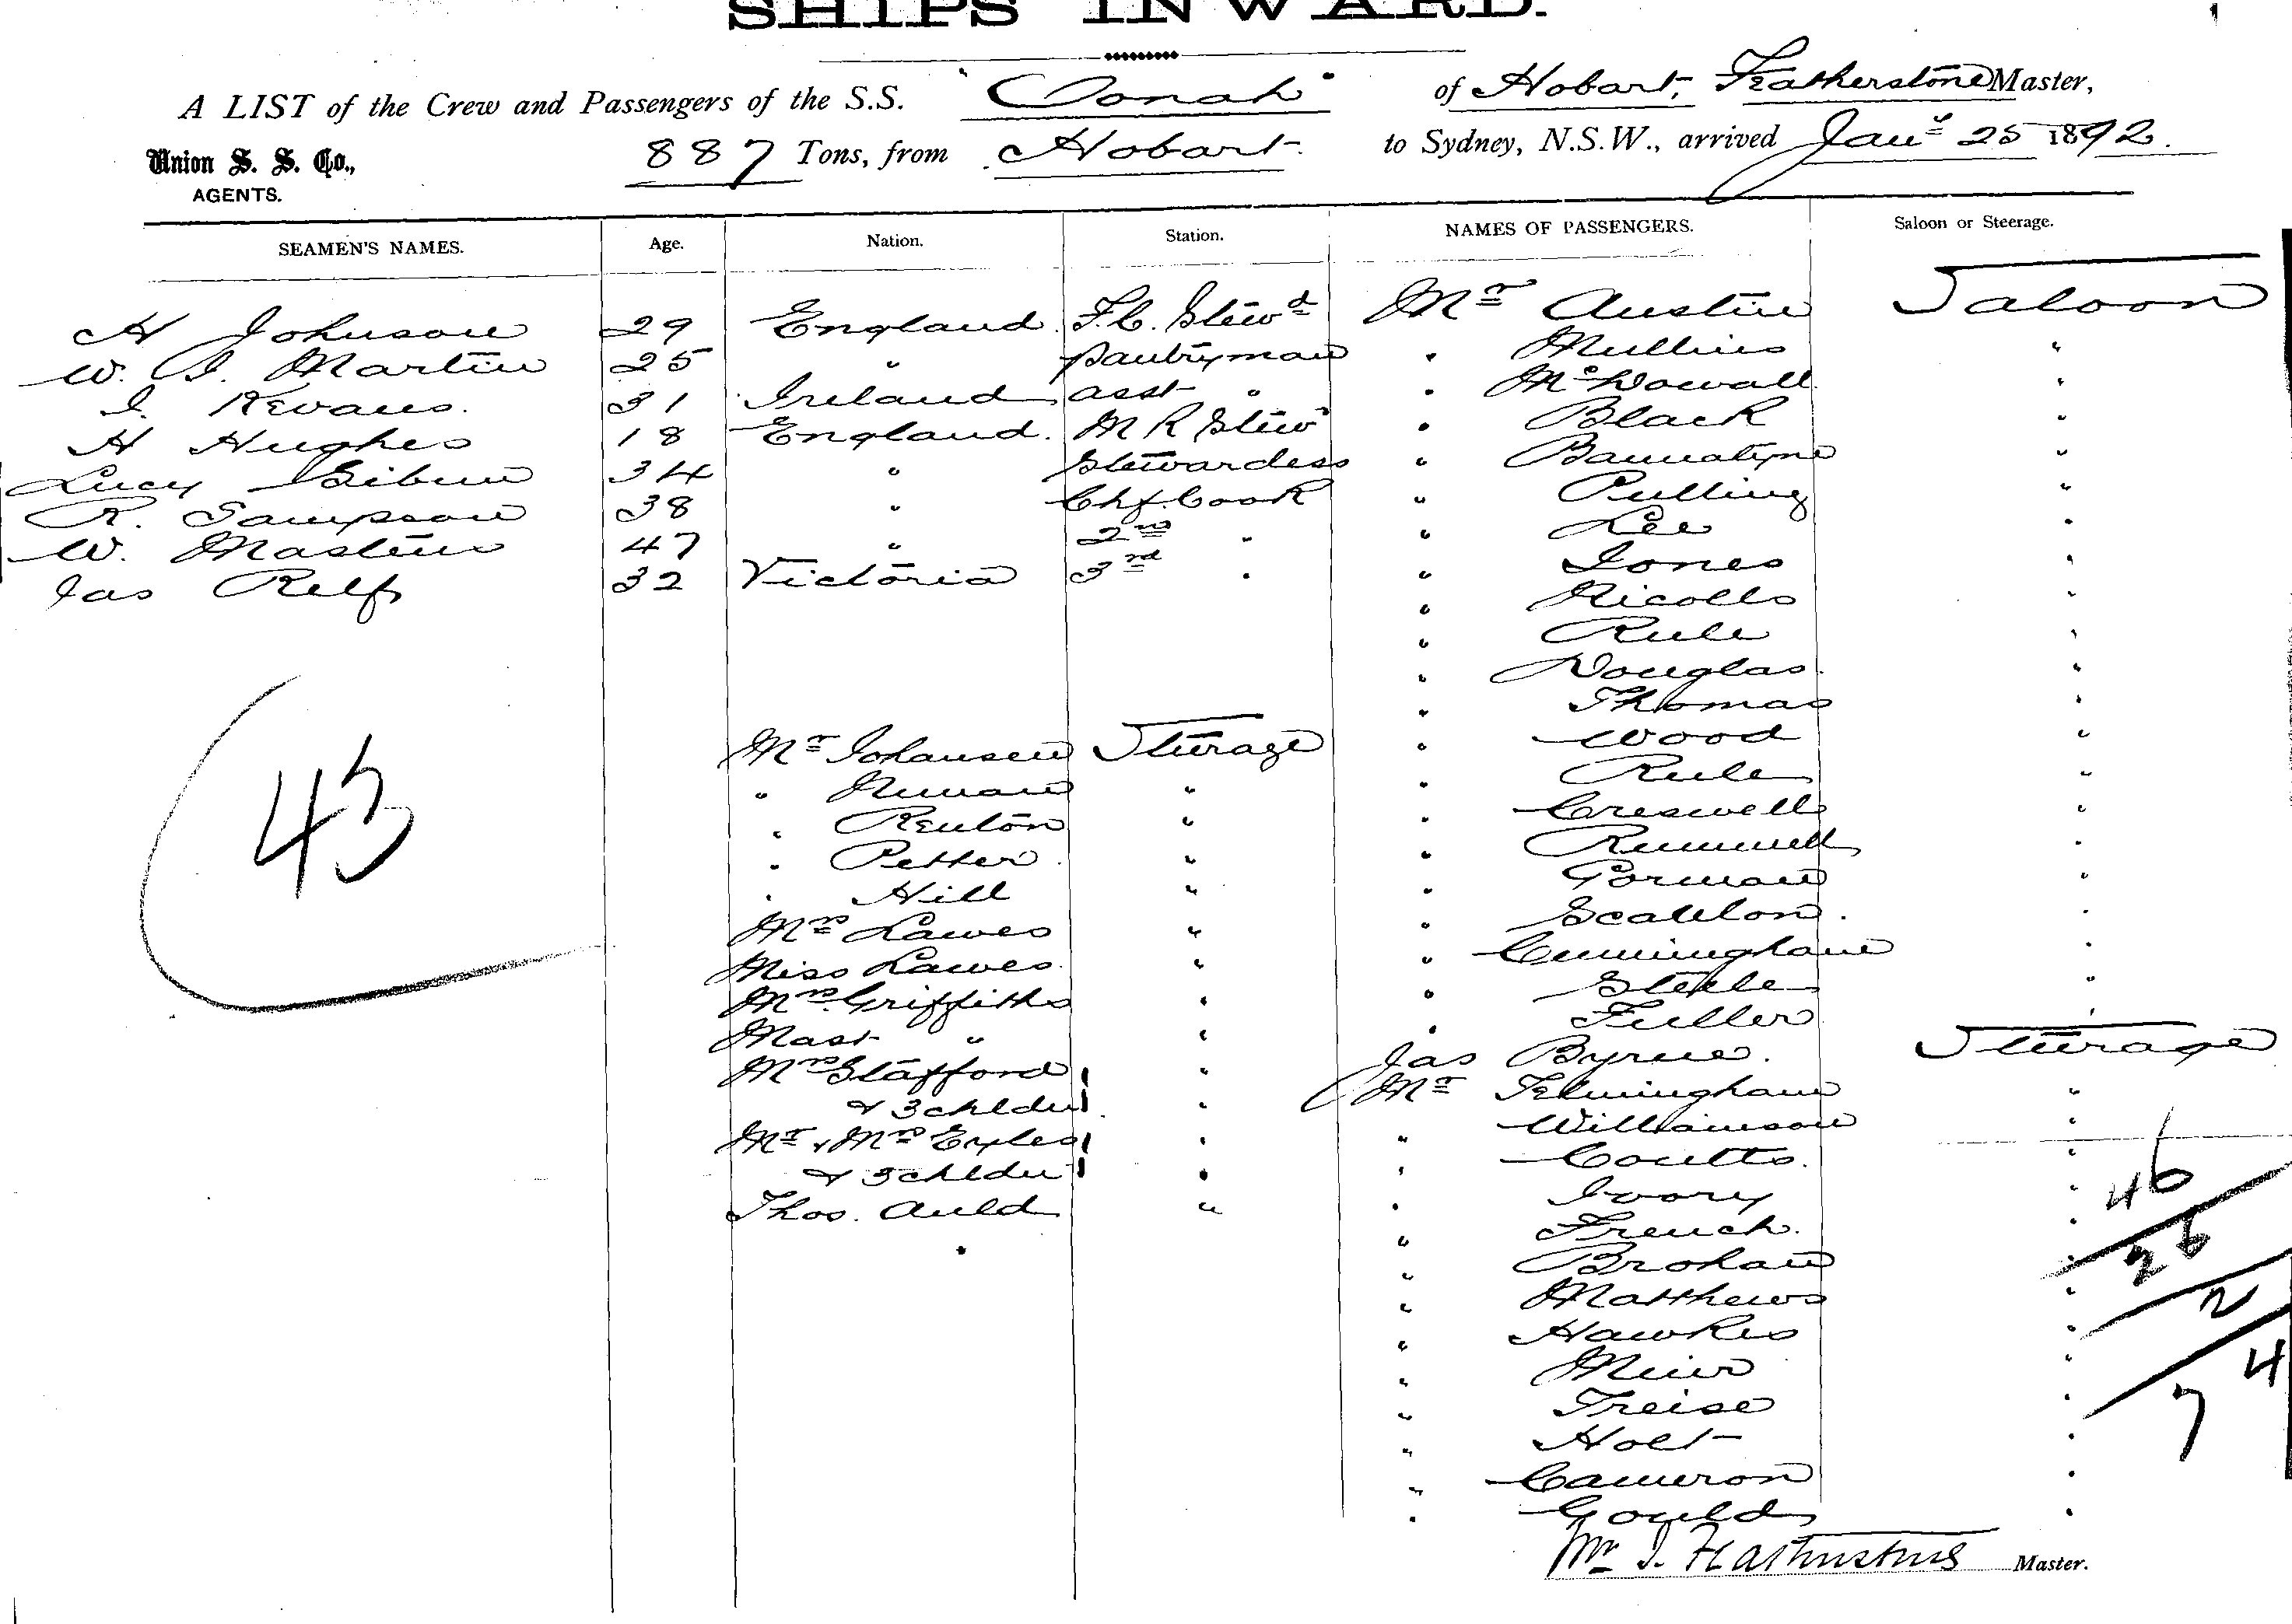 SHIPS INWARD.
A LIST of the Crew and Passengers of the S.S. "Oonah" of Hobart, Featherstone Master,
Union S. S. Co., AGENTS. 887 Tons, from Hobart to Sydney, N.S.W., arrived Jany 25 1892.
SEAMEN'S NAMES. Age. Nation. Station. NAMES OF PASSENGERS. Saloon or Steerage.
H Johnson 29 England F.C. Stewd Mr Austin Saloon
W. J. Martin 25 " Pantryman " Mullins "
J. Kevans. 31 Ireland asst " " McDowall "
H Hughes 18 England. M R Stewd " Black "
Lucy Gibson 34 " Stewardess " Bannatyne "
R. Sampson 38 " Chf. Cook " Pulling "
W. Masters 47 " 2nd " " Lee "
Jas Relf 32 Victoria 3rd " " Jones "
" Nicolls "
" Rule "
" Douglas. "
" Thomas "
Mr Johansen Sturage " Wood "
" Nunan " " Rule "
" Renton " " Creswell "
" Petter. " " Rummell "
" Hill " " Gorman "
Mrs Lawes " " Scanlon. "
Miss Lawes. " " Cunningham "
Mrs Griffiths " " Steele "
Mast " " " Fuller "
Mrs Stafford " Jas Byrne. Sturage
& 3 chldn " Mr Felmingham "
Mr & Mrs Exples " " Williamson "
& 3 chldn " " Coutts. "
Thos. Auld " " Ivory "
" French. "
" Brohan "
" Matthews "
" Hawkes "
" Muir "
" Treise "
" Holt "
" Cameron "
" Gould "
43
46
26
2
74
Master.